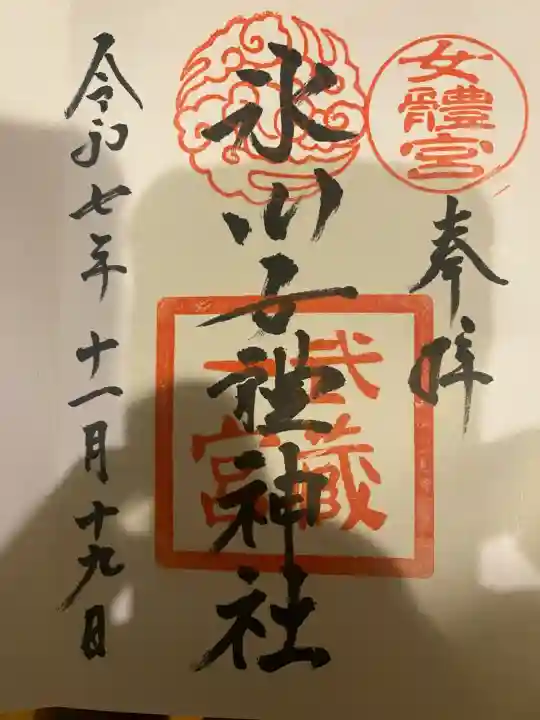 奉拝
女體宮
氷川女體神社
武蔵
一宮
令和七年十一月十九日